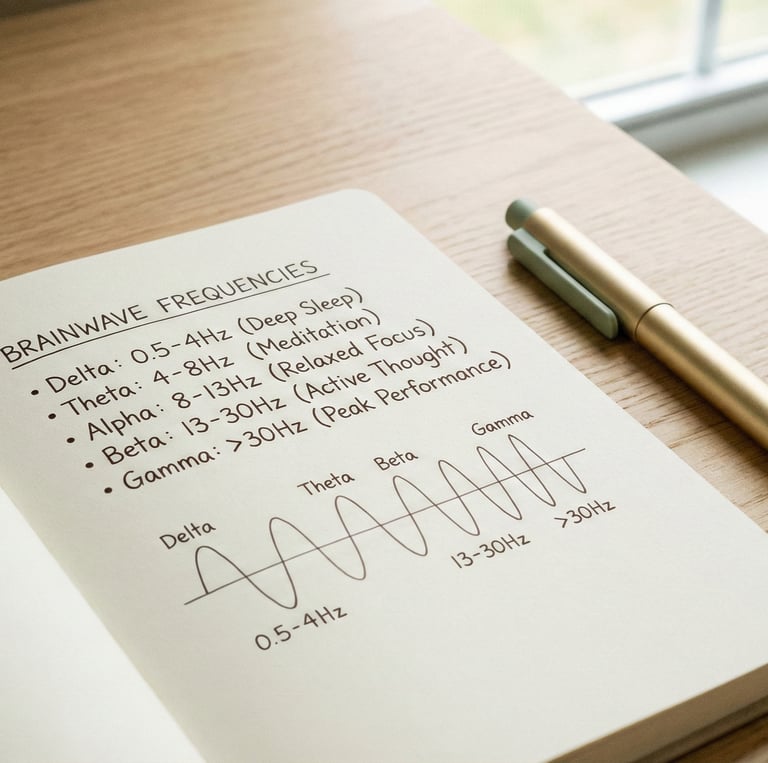 BRAINWAVE FREQUENCIES
• Delta: 0.5-4Hz (Deep Sleep)
• Theta: 4-8Hz (Meditation)
• Alpha: 8-13Hz (Relaxed Focus)
• Beta: 13-30Hz (Active Thought)
• Gamma: >30Hz (Peak Performance)
Delta Theta Beta Gamma
0.5-4Hz 13-30Hz >30Hz